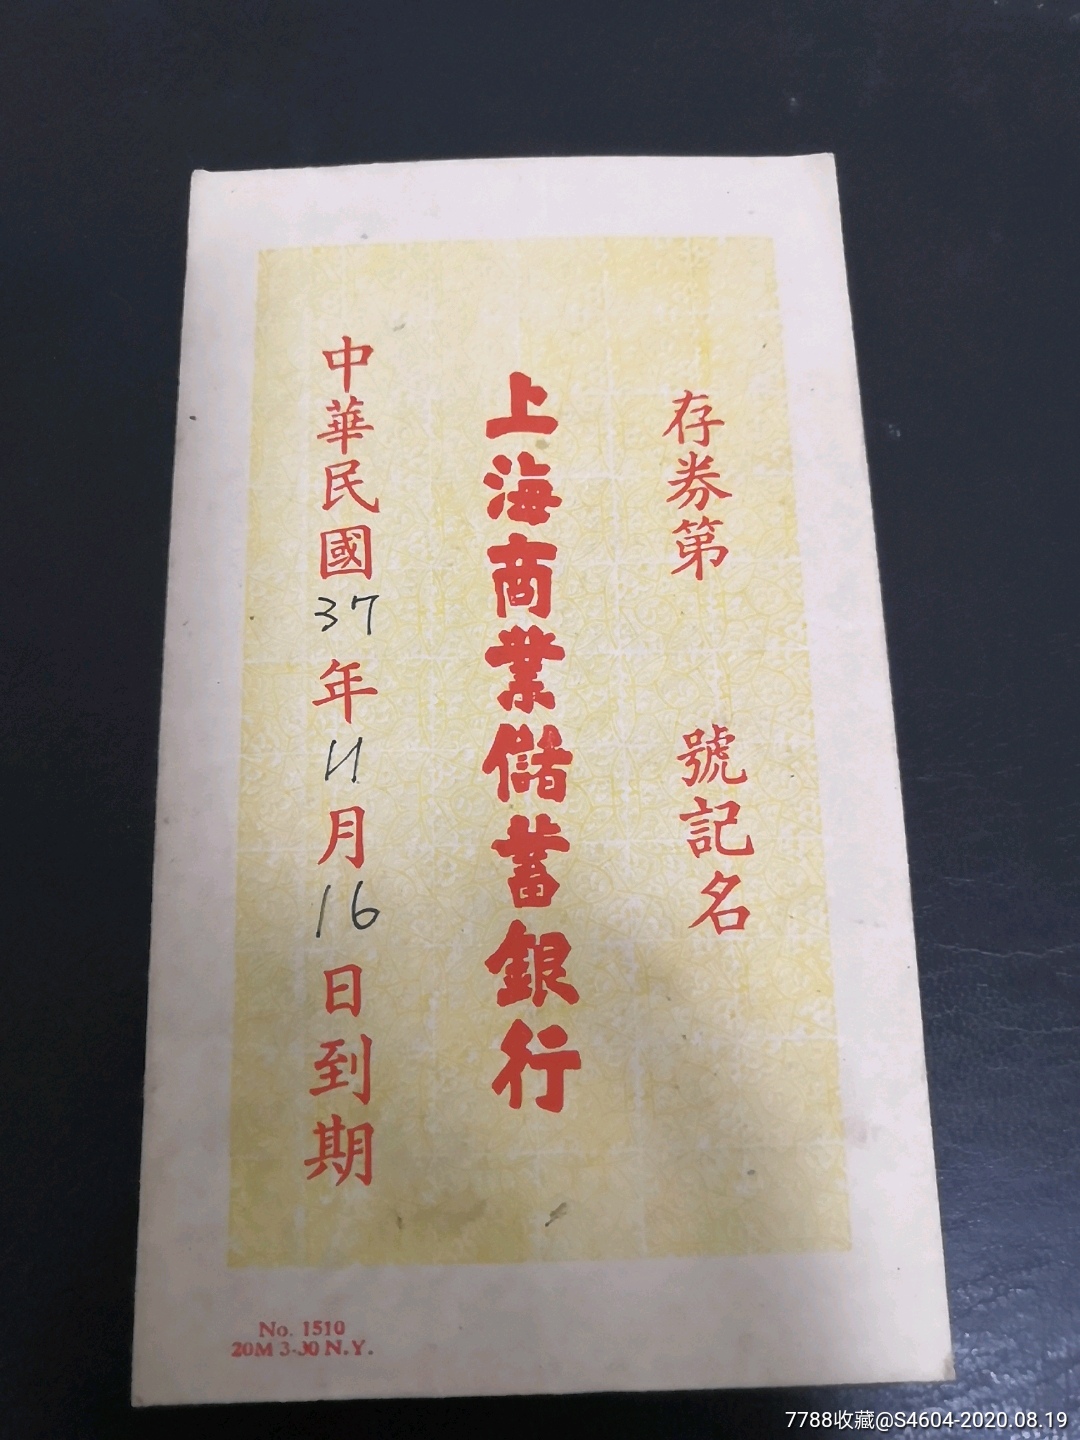 存券第 號記名
上海商業儲蓄銀行
中華民國37年11月16日到期
No. 1510
20M 3-30 N.Y.
7788收藏@S4604-2020.08.19